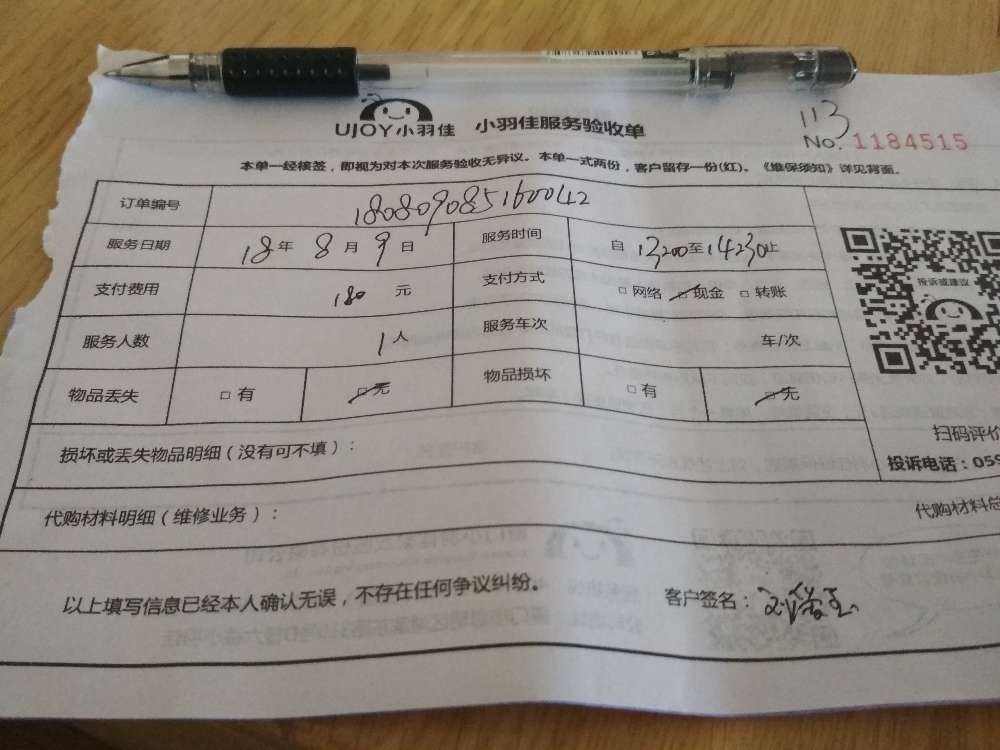 UJOY小羽佳 小羽佳服务验收单
113
No. 1184515
本单一经核签，即视为对本次服务验收无异议。本单一式两份，客户留存一份(红)。《维保须知》详见背面。
订单编号 180809085160042
服务日期 18年 8月 9日 服务时间 自 13200至14230止
支付费用 180 元 支付方式 □网络 □现金 □转账
服务人数 1人 服务车次 车/次
物品丢失 □有 □无 物品损坏 □有 □无
投诉或建议
扫码评价
投诉电话：059
损坏或丢失物品明细（没有可不填）：
代购材料明细（维修业务）： 代购材料总
以上填写信息已经本人确认无误，不存在任何争议纠纷。 客户签名：